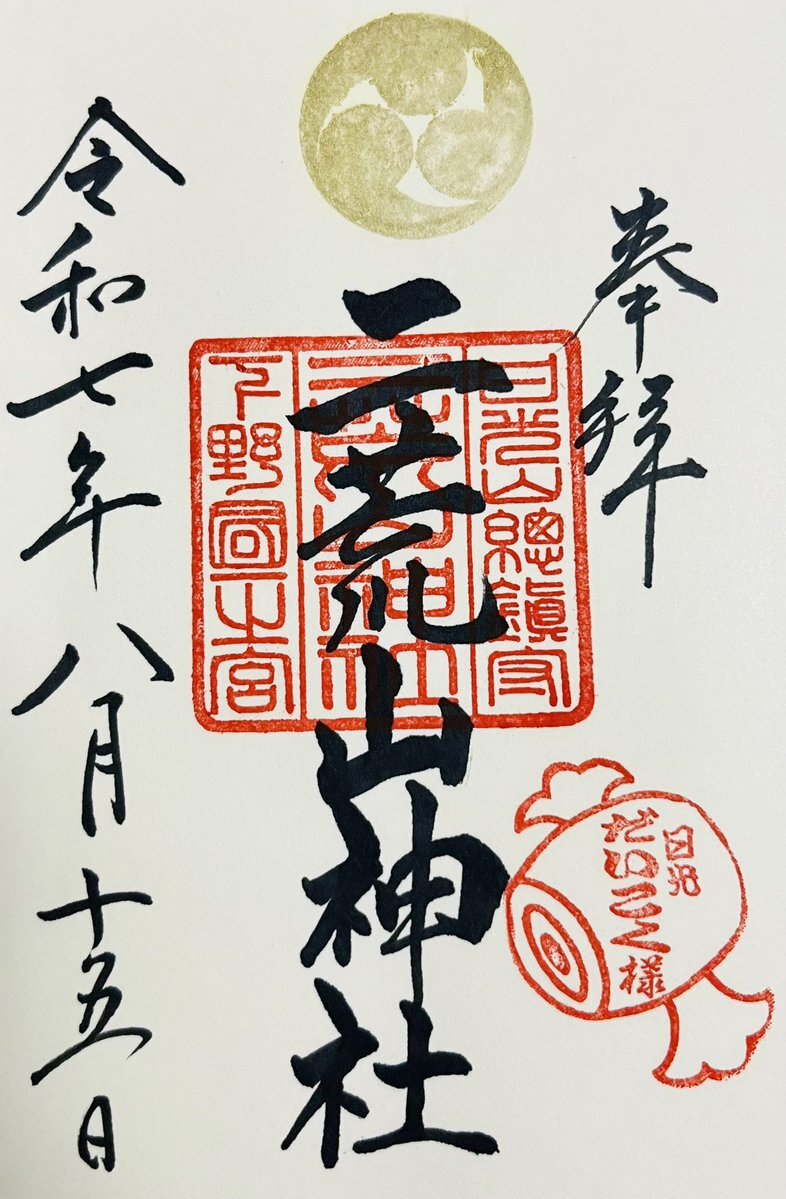 奉拝
日光山總鎮守
二荒山神社
二荒山神社
下野國一之宮
日光
だいこく様
令和七年八月十五日